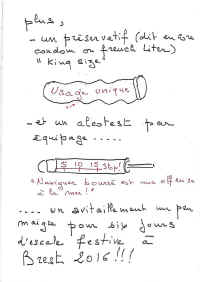 plus,
- un préservatif (dit encore
condom or french leter)
"King size"
Usage unique
- et un alcotest par
equipage .....
5 10 15 stop!
"Naviguer bourré est une offense
à la mer!"
.... un avitaillement un peu
maigre pour six jours
d'escale festive à
Brest 2016!!!